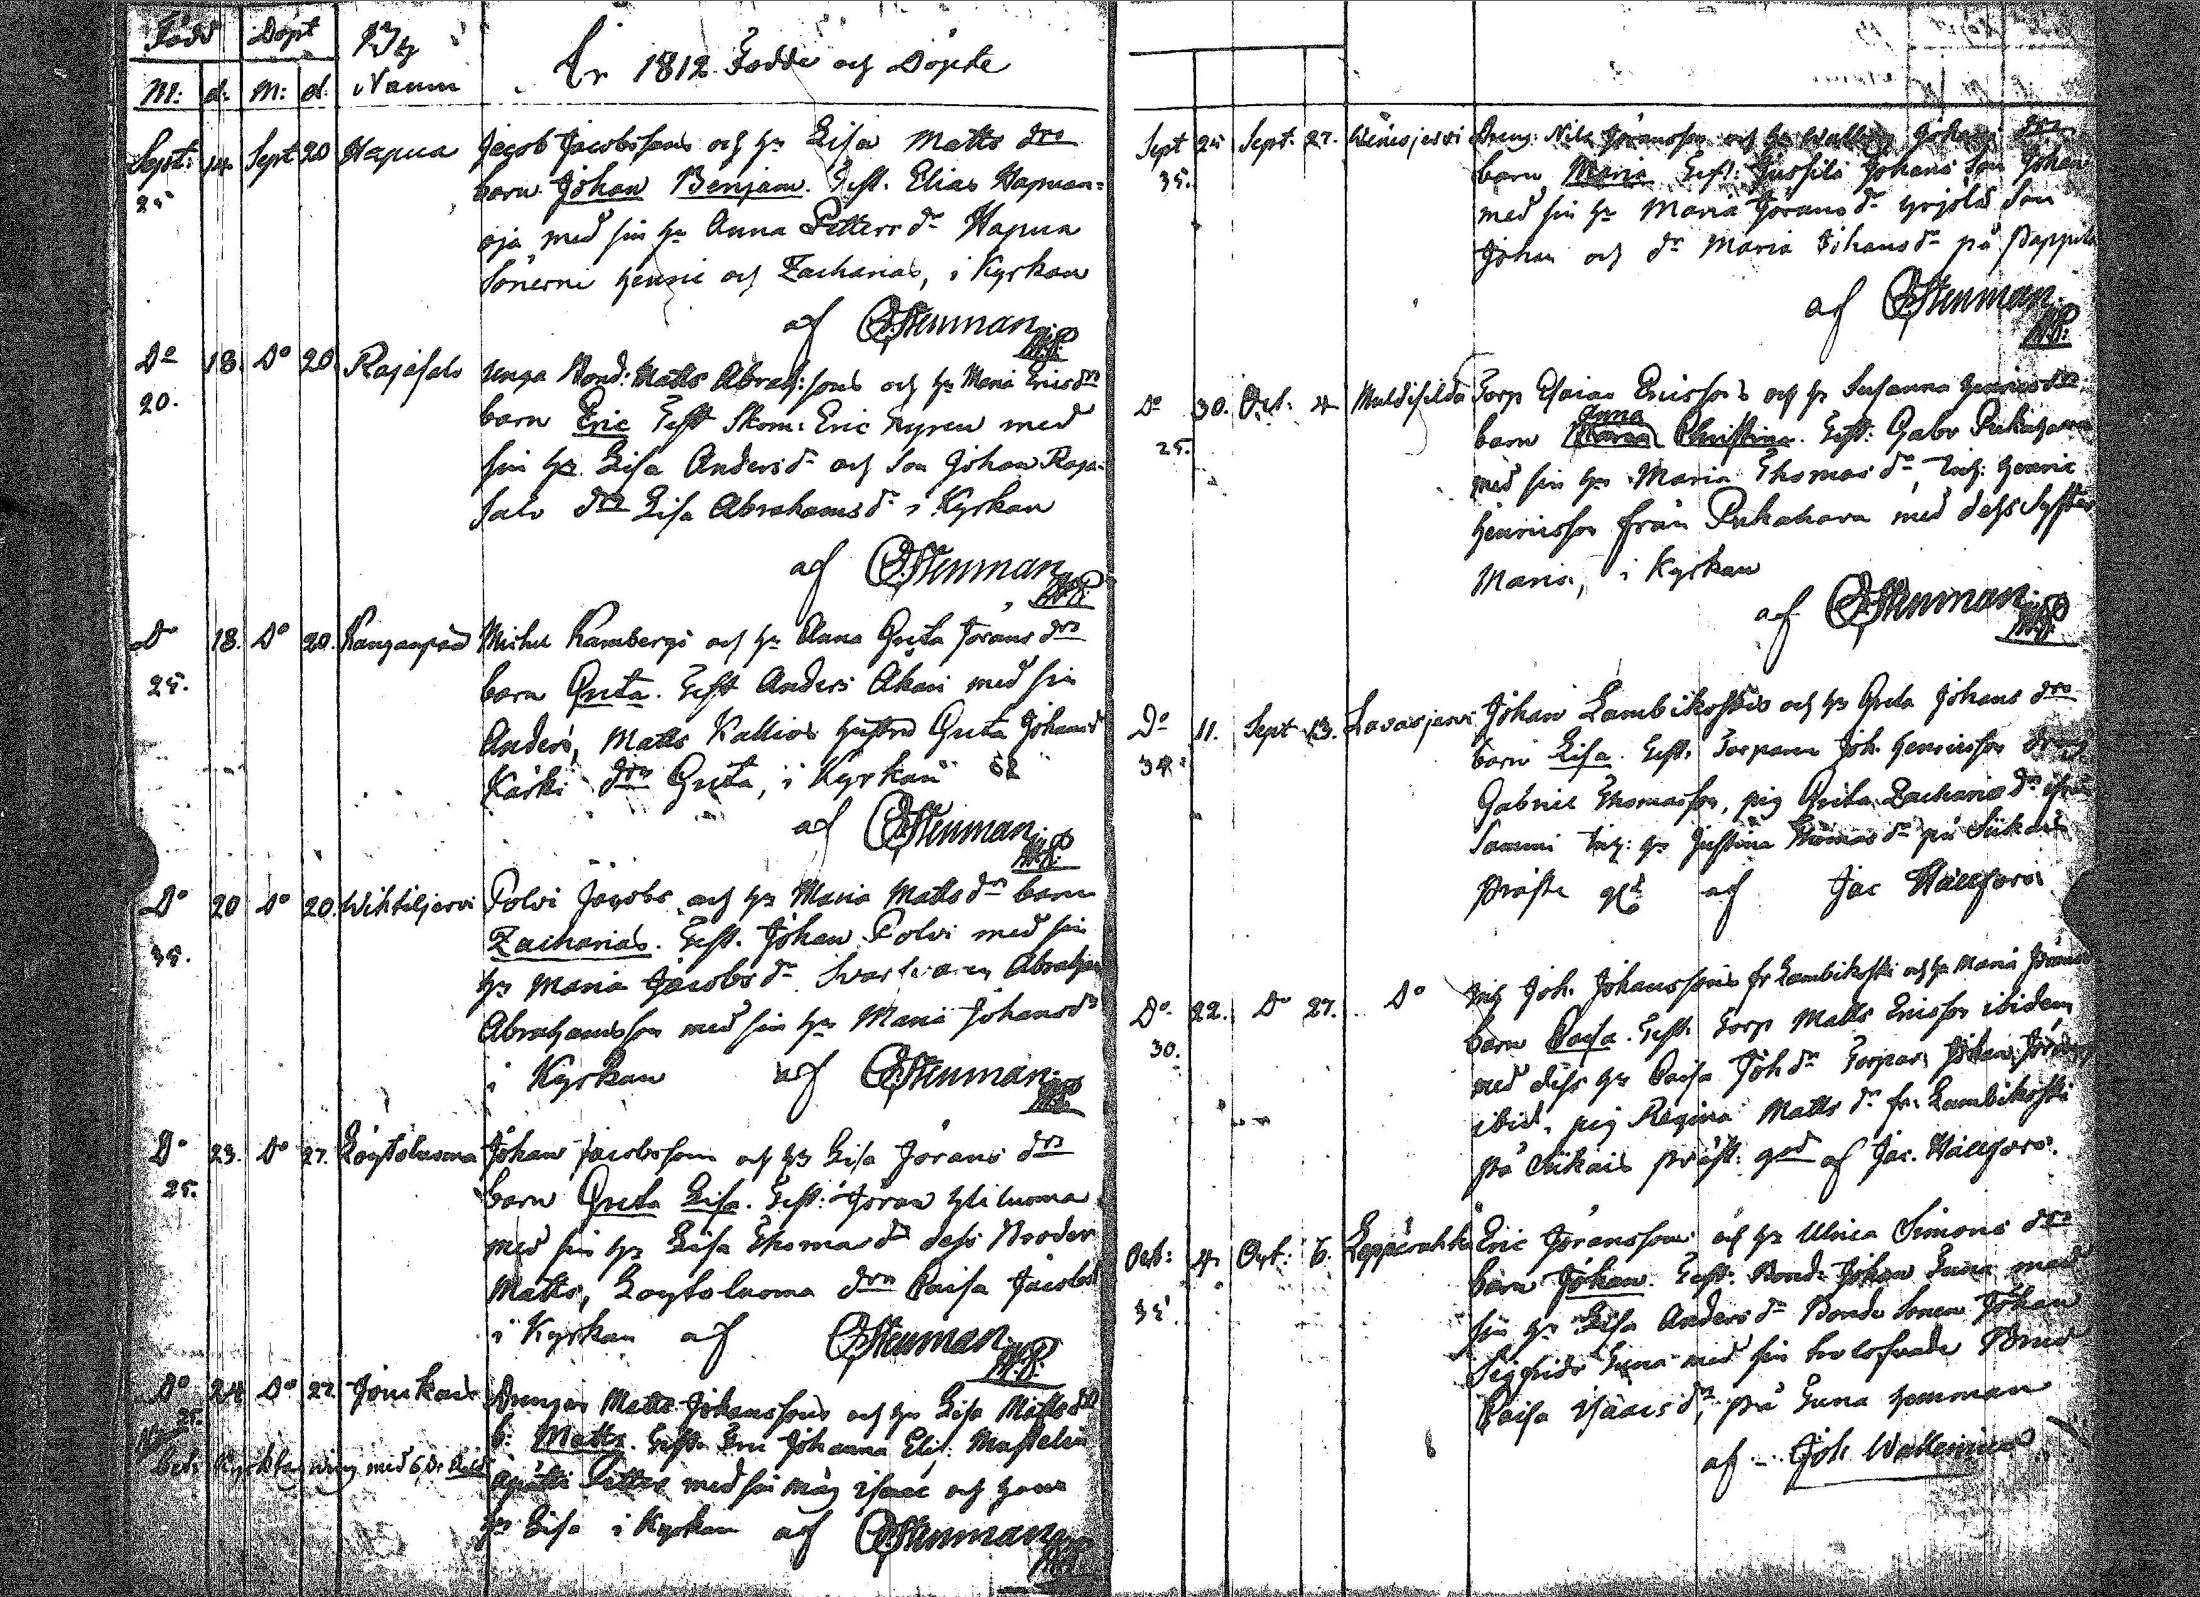 Född Döpt
M: d: M: d. Namn
År 1812 Födde och Döpte
Sept: Sept 20 Hapua Jacob Jacobssons och hu Lisa Matts dr
25 barn Johan Benjam. Test. Elias Hapuan=
oja med sin hu Anna Petters dr Hapua
Sönerne Henric och Zacharias, i Kyrkan
af Stenman
Do 18. Do 20. Rajasalo unga Bond: Matts Abrah:sons och hu Maria Ericsdr
20. barn Eric Test Skom: Eric Nyren med
sin hu Lisa Anders dr och Son Johan Raja-
salo dr Lisa Abrahams dr i Kyrkan
af Stenman
Do 18. Do 20. Kanganpää Michel Rambergs och hu Anna Greta Jörans dr
25. barn Greta. Test Anders Akari med sin
Anders, Matts Kallios hustru Greta Johansd
Kärki dr Greta, i Kyrkan
af Stenman
Do 20 Do 20. Wihteljervi Polvi Jacobs och hu Maria Matts dr barn
35. Zacharias. Test. Johan Polvi med sin
hu Maria Jacobs dr Abraham
Abrahamsson med sin hu Maria Johansdr
i Kyrkan af Stenman
Do 23. Do 27. Löytöluoma Johan Jacobssons och hu Lisa Jörans dr
25. barn Greta Lisa. Test: Jöran Yliluoma
med sin hu Lisa Thomas dr dess Broder
Matts, Loytoluoma dr Caisa Jacobsd
i Kyrkan af Stenman
Do 24 Do 27. Drengen Matts Johanssons och hu Lisa Mattsdr
25. b: Matts. Test. Fru Johanna Elis.
Kyrktagning med 6
Petter med sin måg Isaac och hans
hu Lisa i Kyrkan af Stenman
Sept 25 Sept. 27. Wenesjervi Dreng: Nils Jöransson och hu Johans dr
35. barn Maria Test: Jussila Johans Son Johan
med sin hu Maria Jörans dr Yrjölä Son
Johan och dr Maria Johans dr på Pappila
af Stenman
Do 30. Oct: 4 Multisilda Torp Esaias Ericssons och hu Susanna Henricsdr
Anna
25. barn Maria Christina. Test: Gabr Pukahara
med sin hu Maria Thomas dr, Inh: Henric
Henricsson från Pukahara med dess Syster
Maria, i Kyrkan
af Stenman
Do 11. Sept 13. Lavasjervi Johan Lambikoskis och hu Greta Johans dr
34. barn Lisa. Test: Torparen Joh. Henricsson dreng
Gabriel Thomasson, pig Greta Zacharias dr ifrån
Sammi Inh: hu Justina Thomas dr på Siikais
Präste gd af Jac Hällfors
Do 22. Do 27. Do Inh Joh. Johanssons fr Lambikoski och hu Maria
30. barn Caisa. Test. Torp Matts Ericsson ibidem
med dess hu Caisa Joh dr Torpar Johan
ibid, pig Regina Matts dr fr. Lambikoski
på Siikais präst: gd af Jac. Hällfors.
Oct: 4 Oct: 6. Leppärahka Eric Jöranssons och hu Ulrica Simons dr
35 barn Johan. Test. Bond: Johan Tuna med
sin hu Lisa Anders dr Bonde Sonen Johan
Sigfrids Tuna med sin trolofvade Brud
Caisa Isaacs dr, på Tuna hemman
af Joh Wallenius